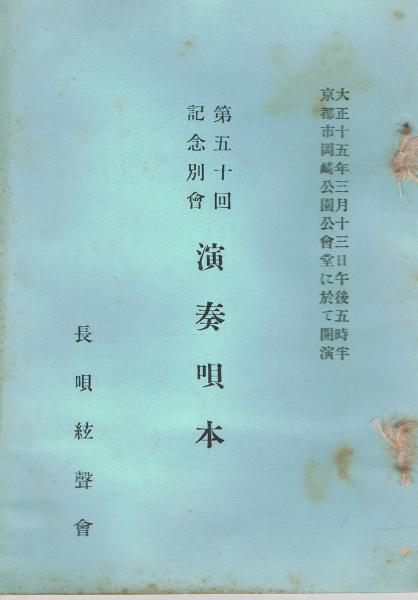 大正十五年三月十三日午後五時半
京都市岡崎公園公會堂に於て開演
第五十回
記念別會
演奏唄本
長唄絃聲會